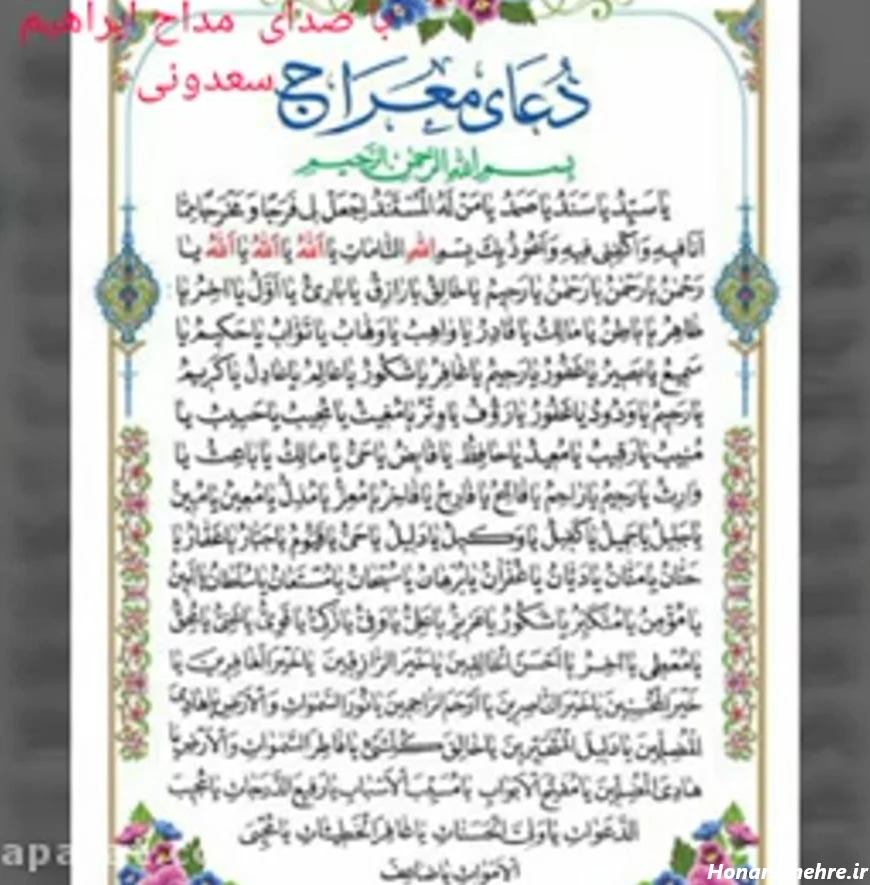 با صدای مداح ابراهیم
سعدونی
دُعَای مِعرَاج
بِسمِ اللهِ الرَّحمنِ الرَّحیمِ
یا سَیِّدُ یا سَنَدُ یا صَمَدُ یا مَن لَهُ المُستَنَدُ اِجعَل لی فَرَجًا وَ مَخرَجًا مِمّا
اَنَا فیهِ وَ اَکفِنی فیهِ وَ اَعُوذُ بِکَ بِسمِ اللهِ التّامّاتِ یا اَللهُ یا اَللهُ یا اَللهُ یا
رَحمنُ یا رَحمنُ یا رَحمنُ یا رَحیمُ یا خالِقُ یا رازِقُ یا بارِئُ یا اَوَّلُ یا اخِرُ یا
ظاهِرُ یا باطِنُ یا مالِکُ یا قادِرُ یا واهِبُ یا وَهّابُ یا تَوّابُ یا حَکیمُ یا
سَمیعُ یا بَصیرُ یا غَفُورُ یا رَحیمُ یا غافِرُ یا شَکُورُ یا عالِمُ یا عادِلُ یا کَریمُ
یا رَحیمُ یا وَدُودُ یا غَفُورُ یا رَؤُفُ یا وِترُ یا مُغیثُ یا مُجیبُ یا حَبیبُ یا
مُنیبُ یا رَقیبُ یا مُعیدُ یا حافِظُ یا قابِضُ یا حَیُّ یا مالِکُ یا باعِثُ یا
وارِثُ یا رَحیمُ یا راحِمُ یا فاتِحُ یا فارِجُ یا فاخِرُ یا مُعِزُّ یا مُذِلُّ یا مُعینُ یا مُبینُ
یا جَلیلُ یا جَمیلُ یا کَفیلُ یا وَکیلُ یا دَلیلُ یا حَیُّ یا قَیُّومُ یا جَبّارُ یا غَفّارُ یا
حَنّانُ یا مَنّانُ یا دَیّانُ یا غُفرانُ یا بُرهانُ یا سُبحانُ یا مُستَعانُ یا سُلطانُ یا اَمینُ
یا مُؤمِنُ یا مُتَکَبِّرُ یا شَکُورُ یا عَزیزُ یا عَلِیُّ یا وَفِیُّ یا زَکِیُّ یا قَوِیُّ یا غَنِیُّ یا مُحِقُّ
یا مُعطی یا اخِرُ یا اَحسَنَ الخالِقینَ یا خَیرَ الرّازِقینَ یا خَیرَ الغافِرینَ یا
خَیرَ المُحسِنینَ یا خَیرَ النّاصِرینَ یا اَرحَمَ الرّاحِمینَ یا نُورَ السَّمواتِ وَ الاَرضِ یا هادِیَ
المُضِلّینَ یا دَلیلَ المُتَحَیِّرینَ یا خالِقَ کُلِّ شَیءٍ یا فاطِرَ السَّمواتِ وَ الاَرضِ یا
هادِیَ المُضِلّینَ یا مُفَتِّحَ الاَبوابِ یا مُسَبِّبَ الاَسبابِ یا رَفیعَ الدَّرَجاتِ یا مُجیبَ
الدَّعَواتِ یا وَلِیَّ الحَسَناتِ یا غافِرَ الخَطیئاتِ یا مُحیِیَ
الاَمواتِ یا ضاعِفَ
Honaremehre.ir